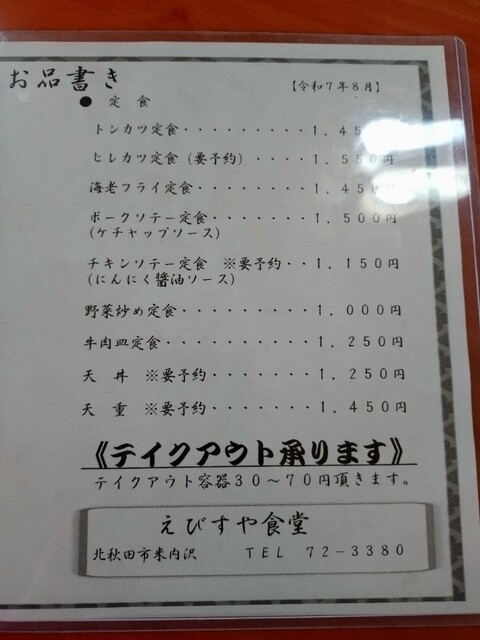 お品書き
【令和7年8月】
● 定 食
トンカツ定食・・・・・・・・・1,45
ヒレカツ定食(要予約)・・・・1,550円
海老フライ定食・・・・・・・・1,450円
ポークソテー定食・・・・・・・1,500円
(ケチャップソース)
チキンソテー定食 ※要予約・・1,150円
(にんにく醤油ソース)
野菜炒め定食・・・・・・・・・1,000円
牛肉皿定食・・・・・・・・・・1,250円
天 丼 ※要予約・・・・・・・1,250円
天 重 ※要予約・・・・・・・1,450円
《テイクアウト承ります》
テイクアウト容器30〜70円頂きます。
えびすや食堂
北秋田市米内沢 TEL 72-3380